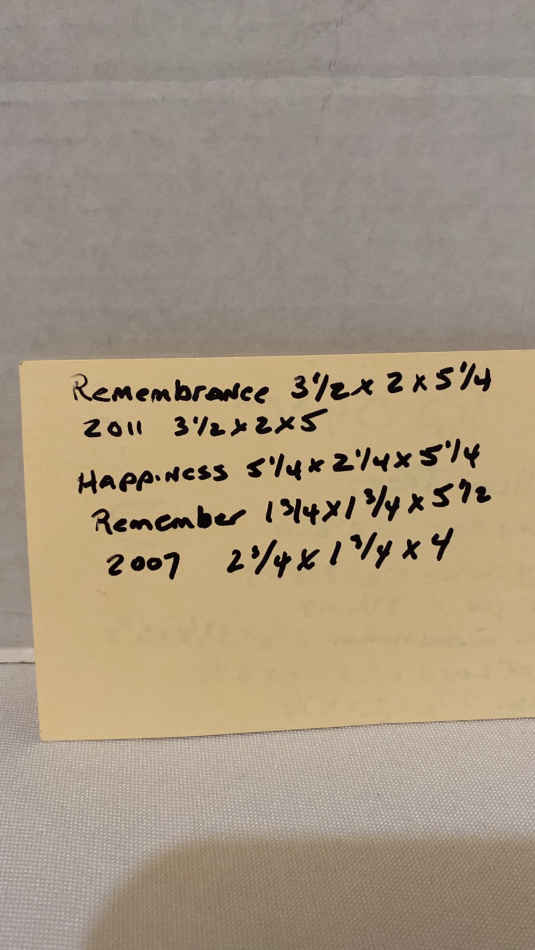 Remembrance 3 1/2 x 2 x 5 1/4
2011 3 1/2 x 2 x 5
Happiness 5 1/4 x 2 1/4 x 5 1/4
Remember 1 3/4 x 1 3/4 x 5 1/2
2007 2 3/4 x 1 3/4 x 4